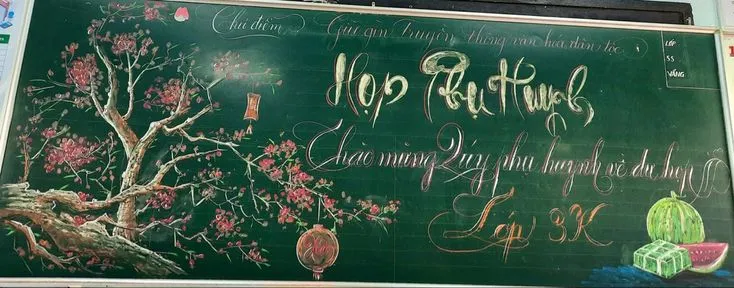 Chủ điểm: Giữ gìn truyền thống văn hóa dân tộc
LỚP
SS
VẮNG
Họp Phụ Huynh
Chào mừng Quý phụ huynh về dự họp
Lớp 3K